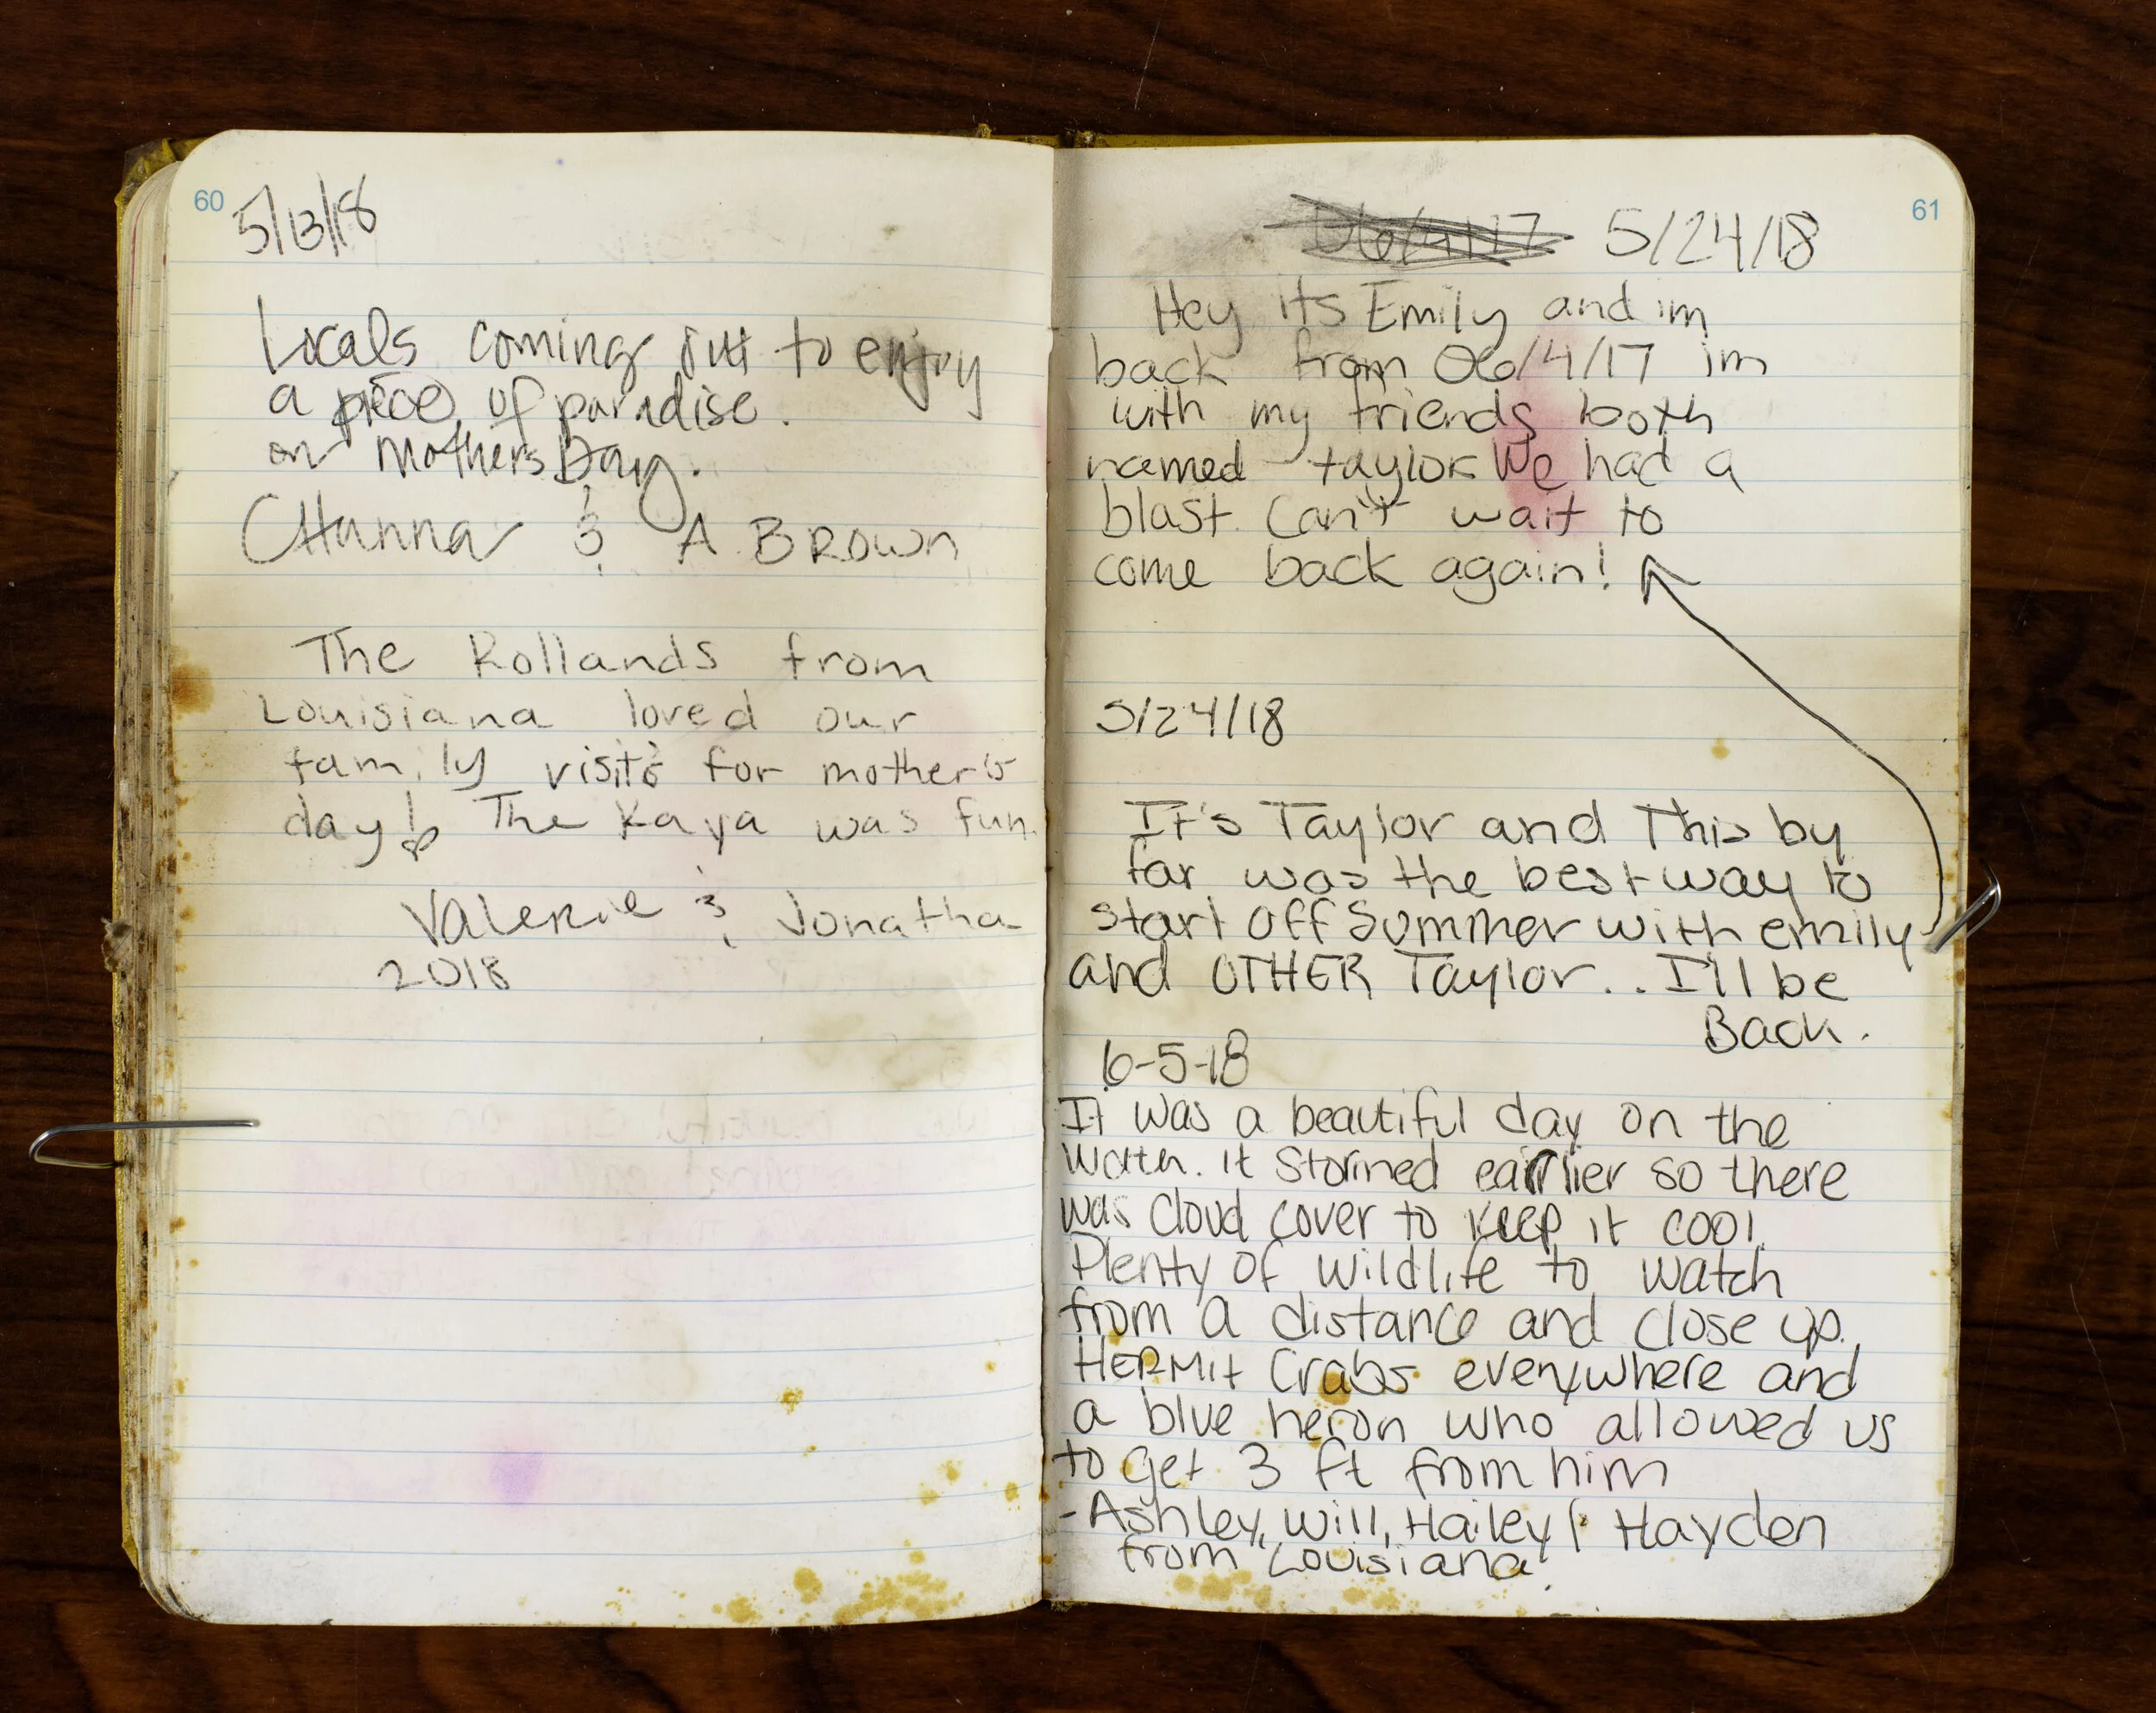 60
5/13/18
Locals coming out to enjoy
a piece of paradise.
on Mothers Day.
CHanna & A BROWN
The Rollands from
Louisiana loved our
family visits for mother's
day! The Kaya was fun.
Valerie & Jonatha
2018
61
06/4/17 5/24/18
Hey its Emily and im
back from 06/4/17 im
with my friends both
named taylor We had a
blast. Can't wait to
come back again!
5/24/18
It's Taylor and This by
far was the best way to
start off Summer with emily
and OTHER Taylor.. I'll be
Back.
6-5-18
It was a beautiful day on the
water. it stormed earlier so there
was cloud cover to keep it cool.
Plenty of wildlife to watch
from a distance and close up.
HERMit Crabs everywhere and
a blue heron who allowed us
to get 3 ft from him
-Ashley, Will, Hailey & Hayden
from Louisiana!